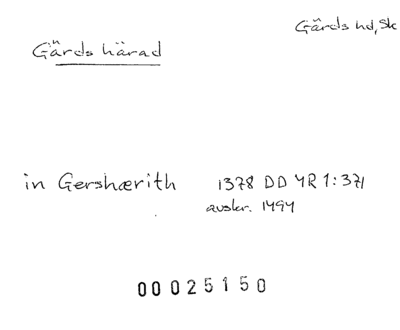 Gärds hd, Sk
Gärds härad
in Gershærith 1378 DD 4R 1:371
avskr. 1494
00025150